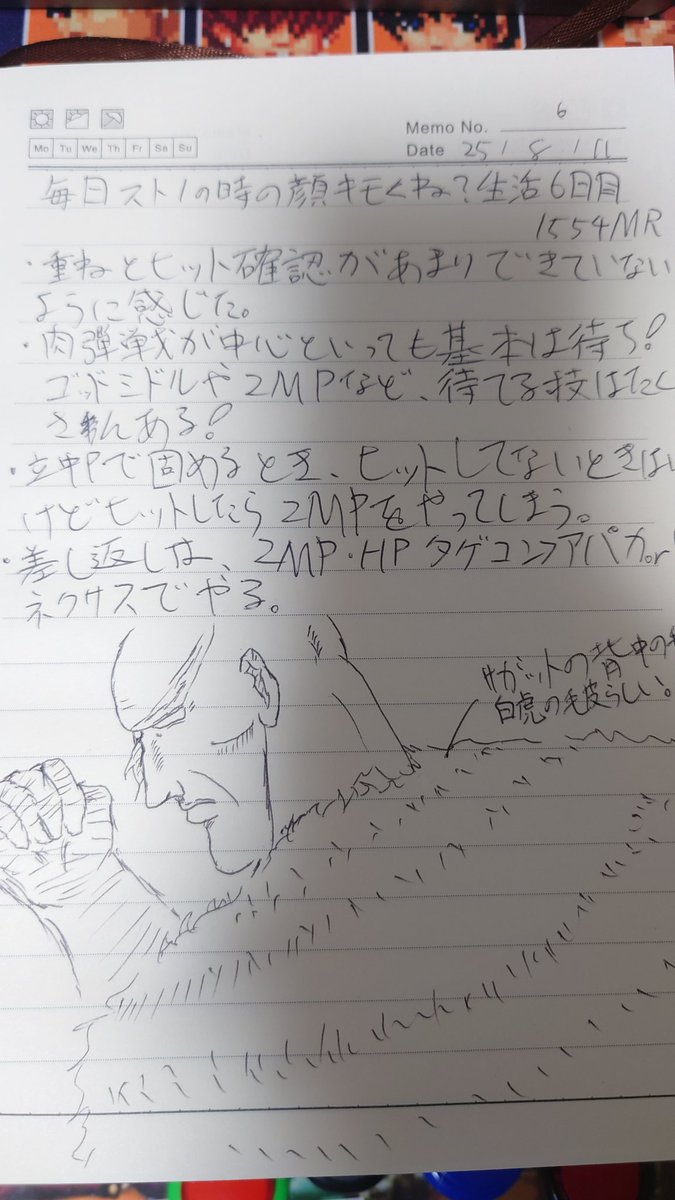 Memo No. 6
Mo Tu We Th Fr Sa Su
Date 25 / 8 / 11
毎日スト1の時の顔キモくね?生活6日目
1554MR
・重ねとヒット確認があまりできていない
ように感じた。
・肉弾戦が中心といっても基本は待ち!
ゴッドミドルや2MPなど、待てる技はたく
さんある!
・立中Pで固めるとき、ヒットしてないときはい
けどヒットしたら2MPをやってしまう。
・差し返しは、2MP・HPタゲコンアパカor
ネクサスでやる。
サガットの背中の
白虎の毛皮らしい。